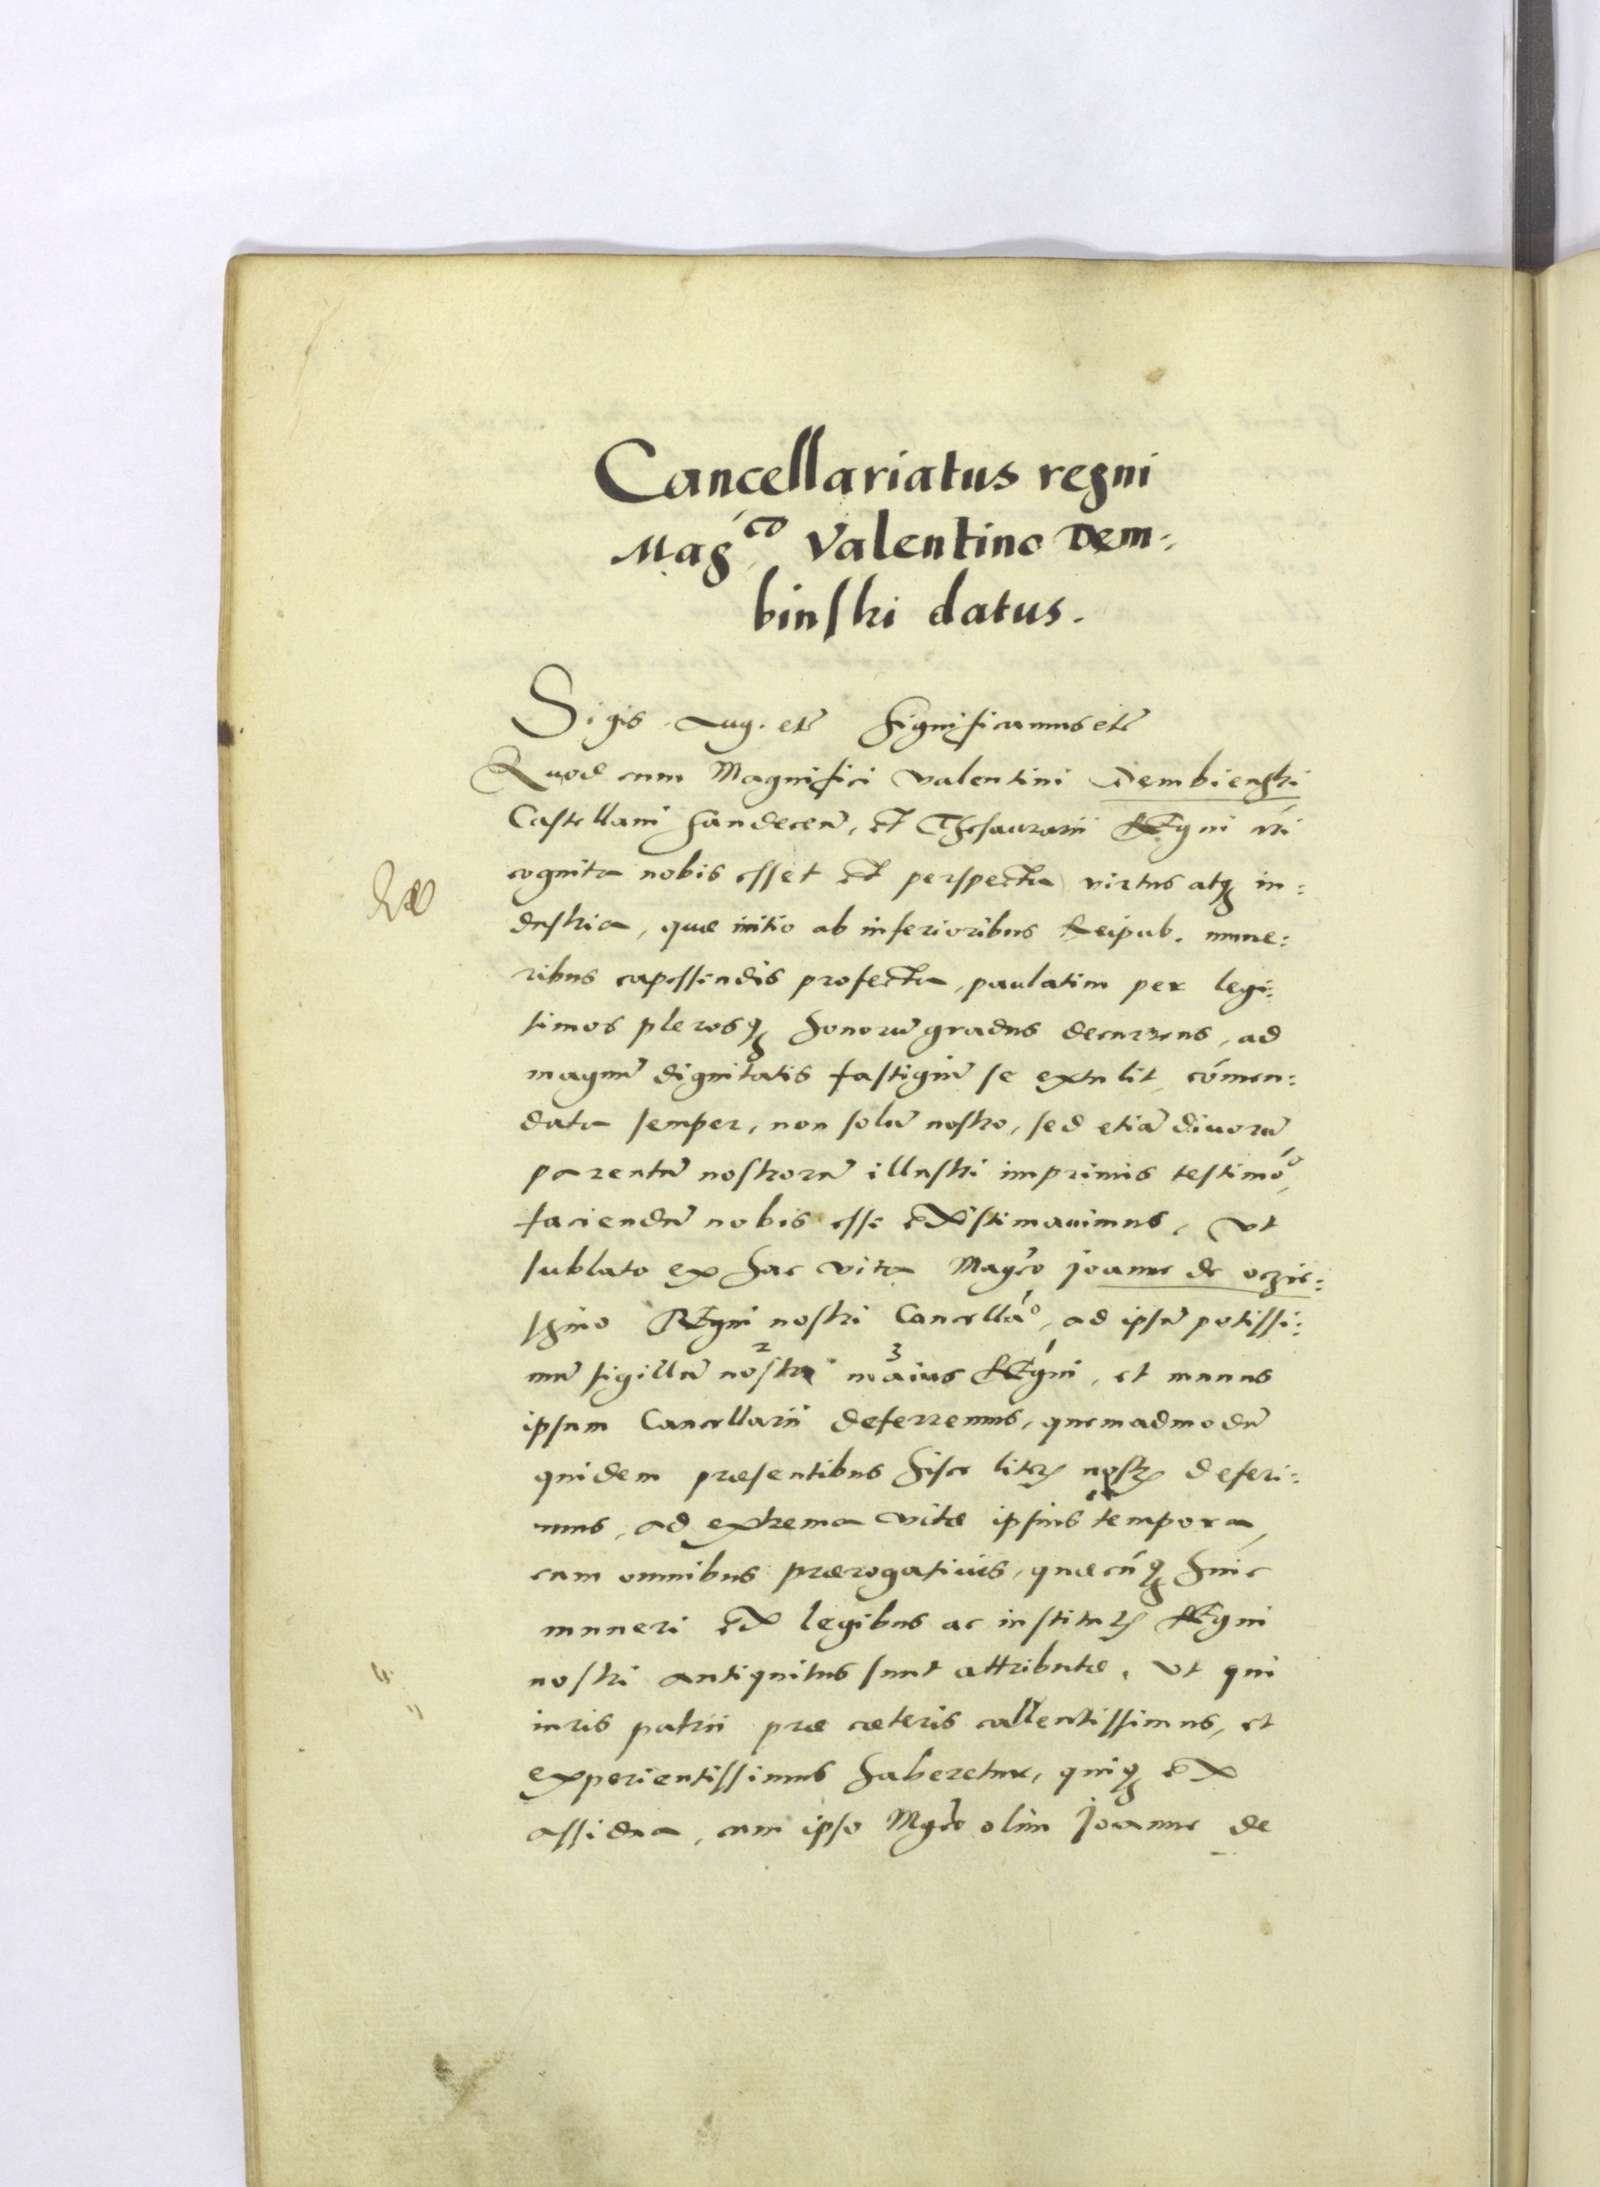 Cancellariatus regni
Mag.co Valentino Dem:
binski datus.
Sigis. Aug. etc̃ Significamus etc̃
Quod cum Magnifici Valentini Dembienski
Castellani Sandecen̄, et Thesaurarii Regni nr̄i
cognita nobis esset et perspecta virtus atq́ in:
dustria, quæ initio ab inferioribus Reipub. mune:
ribus capessendis profecta, paulatim per legi:
timos plerosq́ honorū gradus decurrens, ad
magnū dignitatis fastigiū se extulit, com̄en:
data semper, non solū nostro, sed etiā divorū
parentū nostrorū illustri imprimis testimoo,
faciendū nobis esse existimavimus, Vt
sublato ex hac vita Magco Joanne de oczie:
schino Regni nostri Cancellao, ad ipsū potissi:
mū sigillū nostri 2 maius 3 Regni 1, et munus
ipsum Cancellarii deferremus, quemadmodū
quidem præsentibus hisce literꝭ nostrꝭ deferi:
mus, ad extrema vitæ ipsius tempora,
cum omnibus prærogativis, quæcūq́ huic
muneri ex legibus ac institutꝭ Regni
nostri antiquitus sunt attributæ. Vt qui
iuris patrii præ cæteris callentissimus, et
experientissimus haberetur, quiq́ ex
assidua, cum ipso Mgco olim Joanne de